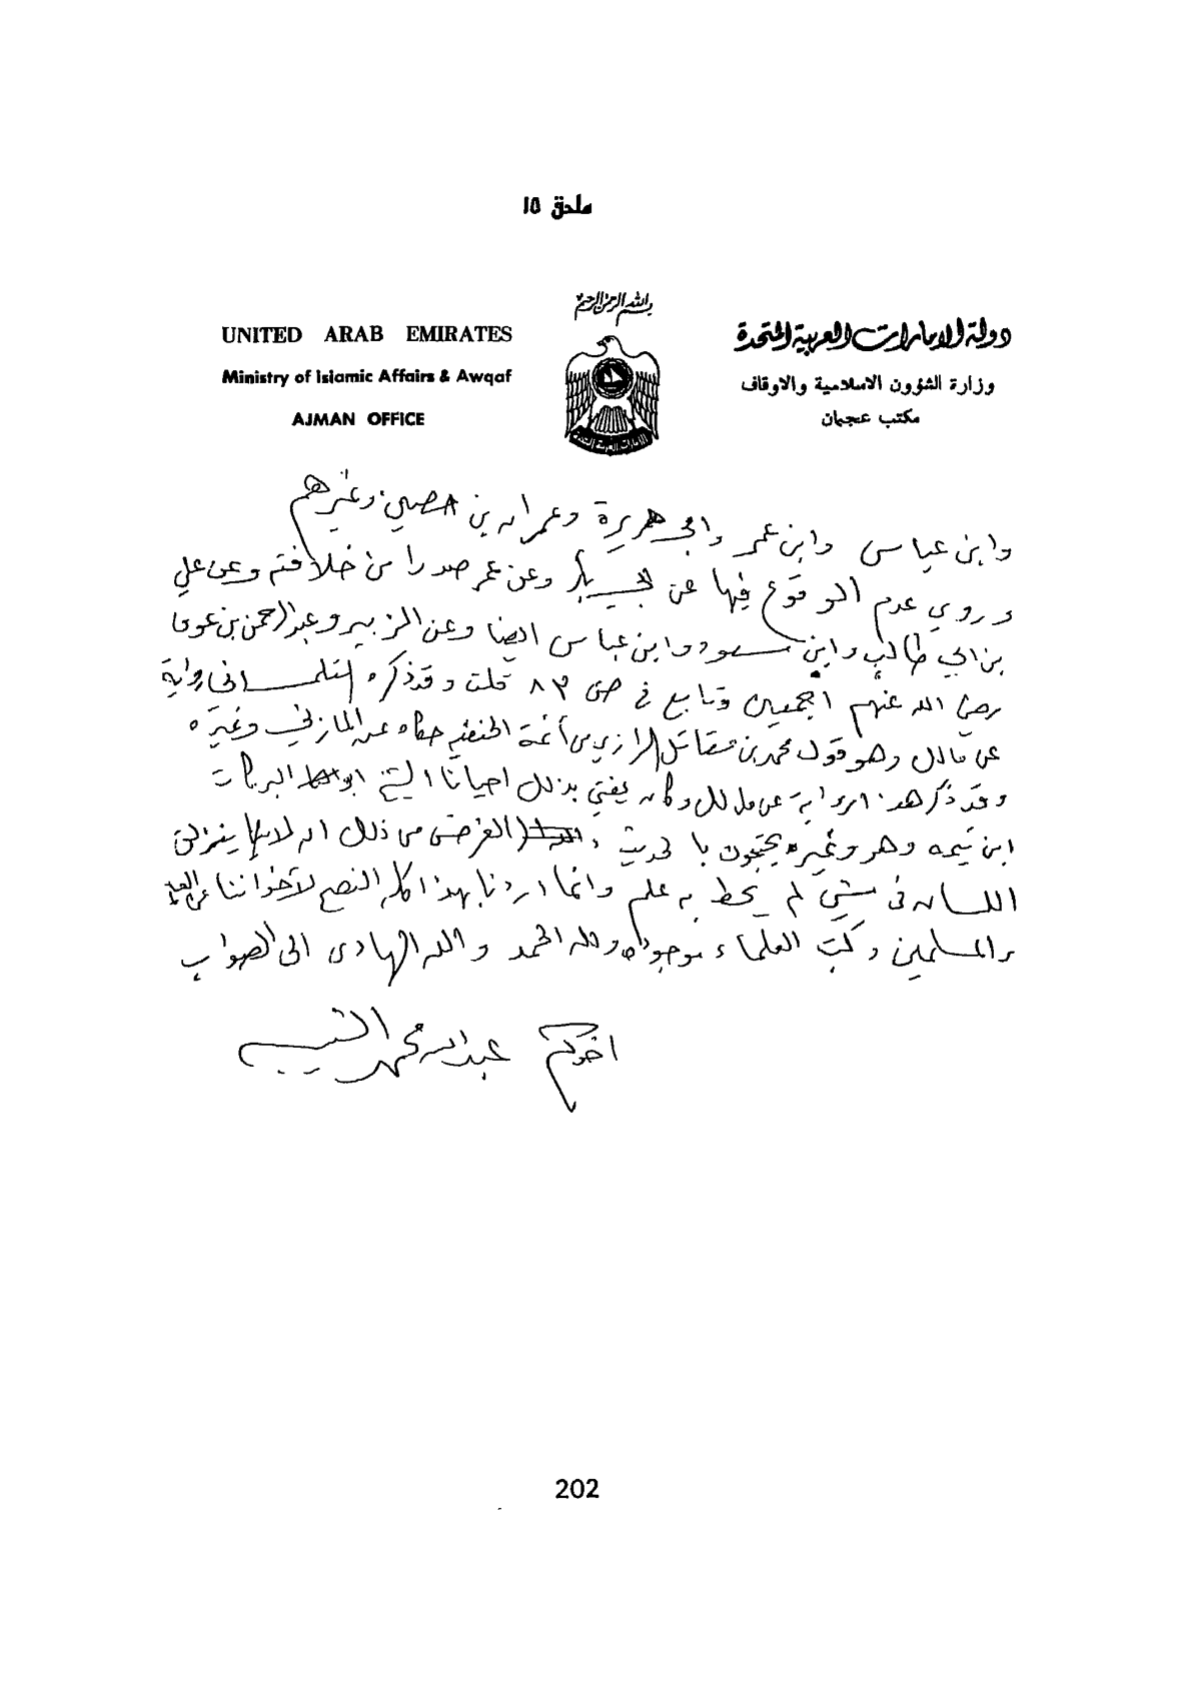 ملحق ١٥
بسم الله الرحمن الرحيم
UNITED ARAB EMIRATES
Ministry of Islamic Affairs & Awqaf
AJMAN OFFICE
دولة الامارات العربية المتحدة
وزارة الشؤون الاسلامية والاوقاف
مكتب عجمان
وابن عباس وابن عمر وابي هريرة وعمران بن حصين وغيرهم
وروي عدم الوقوع فيها عن ابي بكر وعن عمر صدرا من خلافته وعن علي
بن ابي طالب وابن مسعود وابن عباس ايضا وعن الزبير وعبد الرحمن بن عوف
رضي الله عنهم اجمعين وتابع في ص ٨٣ قلت وقد ذكره التلمساني رواية
عن مالك وهو قول محمد بن مقاتل الرازي من أئمة الحنفية حكاه عنه المازني وغيره
وقد ذكر هذه الرواية عن مالك وكان يفتي بذلك احيانا الشيخ ابو البركات
ابن تيميه وهو وغيره يحتجون بالحديث الغرض من ذلك ان لا ينزلق
اللسان في شئ لم يحط به علم وانما اردنا بهذا كله النصح لأخواننا
والمسلمين وكتب العلماء موجودة ولله الحمد والله الهادي الى الصواب
اخوكم عبدالله محمد الشيبه
202